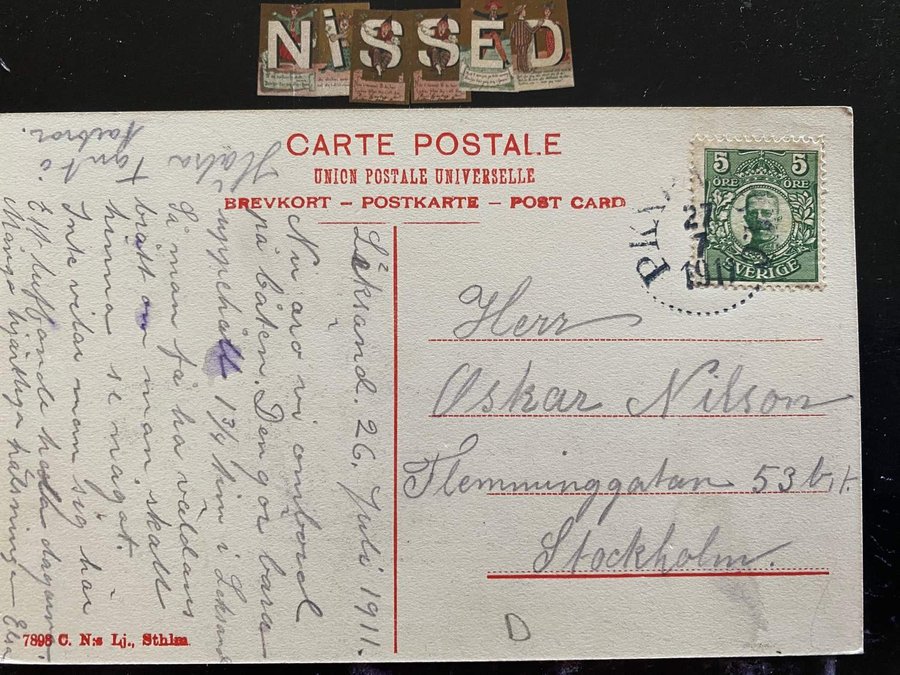 NiSSED
CARTE POSTALE
UNION POSTALE UNIVERSELLE
BREVKORT – POSTKARTE – POST CARD
5 5
ÖRE ÖRE
SVERIGE
27
7
191
Herr
Oskar Nilson
Flemminggatan 53 b, 1.
Stockholm.
Leksand. 26. Juli 1911.
Nu äro vi ombord
på båten. Den gör bara
uppehåll 1 3/4 tim i Leksand
Så man få ha väldans
brått om man skall
hinna se något.
Inte vilar man sig här
Ett luffande hela dagarna.
Många hjärtliga hälsningar Elsa
Hälsa
Tant o
Farbror.
7898 C. N:s Lj., Sthlm